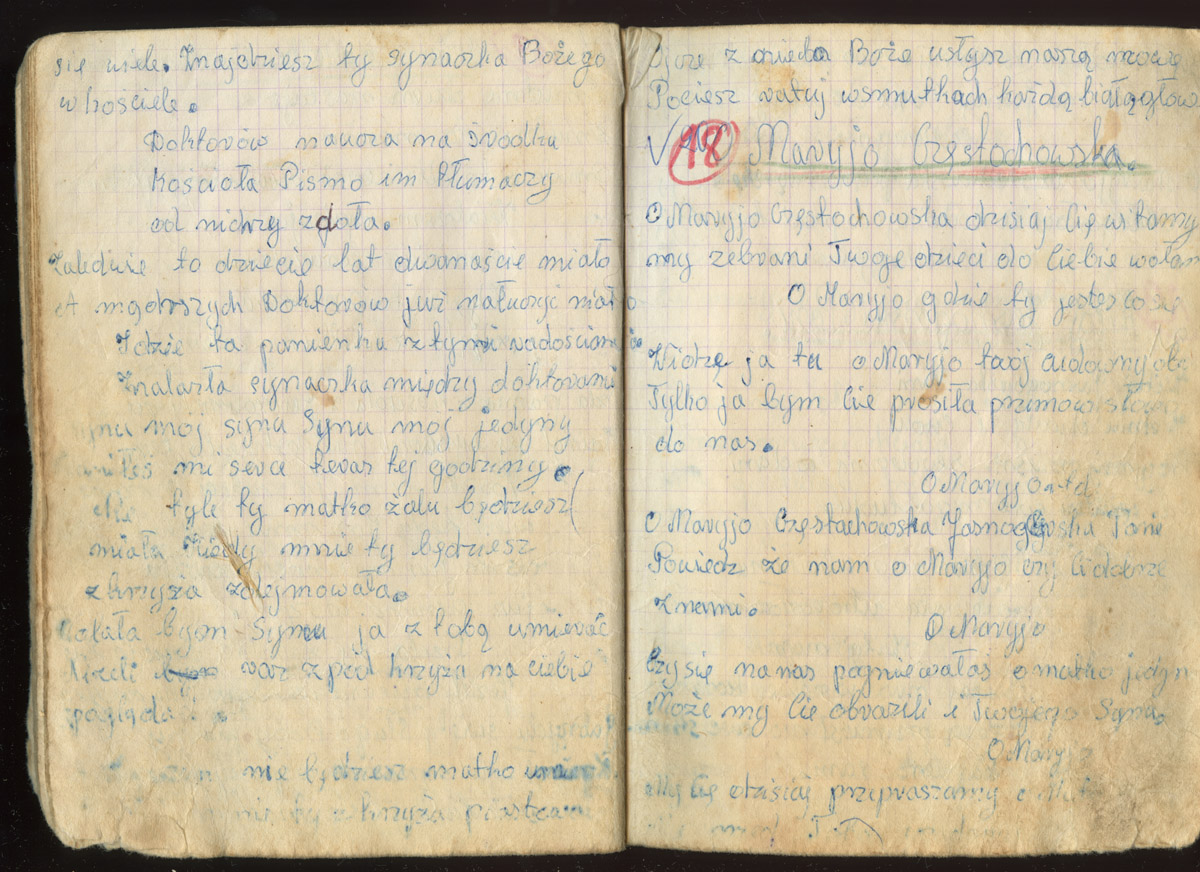 się wiele. Znajdziesz ty synaczka Bożego
w kościele.
Doktorów naucza na środku
kościoła Pismo im tłumaczy
od nichzy zgoła.
Zaledwie to dziecię lat dwanaście miało
A mądrszych Doktorów już nałuczyć miało
Idzie ta panienka z tymi radościami
Znalazła synaczka między doktorami
Synu moj synu Synu moj jedyny
mi serce teraz tej godziny.
Nie tyle ty matko żalu będziesz
miała Kiedy mnie ty będziesz
z krzyża zdejmowała.
bym Synu ja z tobą umierać
Niżeli raz z pod krzyża na ciebie
nie będziesz matko
ty z krzyża piastować
Ojcze z nieba Boże usłysz naszą mowę
Pociesz ratuj wsmutkach każdą białągłow
18 Maryjo Częstochowska.
O Maryjo Częstochowska dzisiaj Cię witamy
my zebrani Twoje dzieci do Ciebie wołam
O Maryjo gdzie ty jesteś co się
Widzę ja tu o Maryjo twój cudowny
Tylko ja bym Cie prosiła przimow słowo
do nas.
O Maryjo itd
O Maryjo Częstochowska Jasnogórska Pani
Powiedz że nam o Maryjo czy Ci dobrze
znami.
O Maryjo
Czy się na nas pogniewałaś o matko jedyn
Może my Cie obrazili i Twojego Syna.
O Maryj
My Cię dzisiaj przepraszamy o